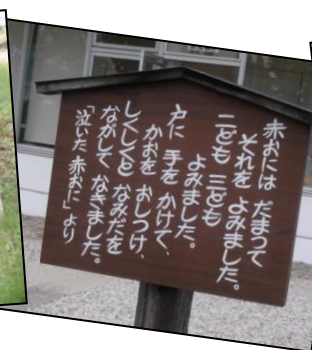 赤おには だまって
それを よみました。
二ども 三ども
よみました。
戸に 手を かけて、
かおを おしつけ、
しくしくと なみだを
ながして なきました。
「泣いた 赤おに」より